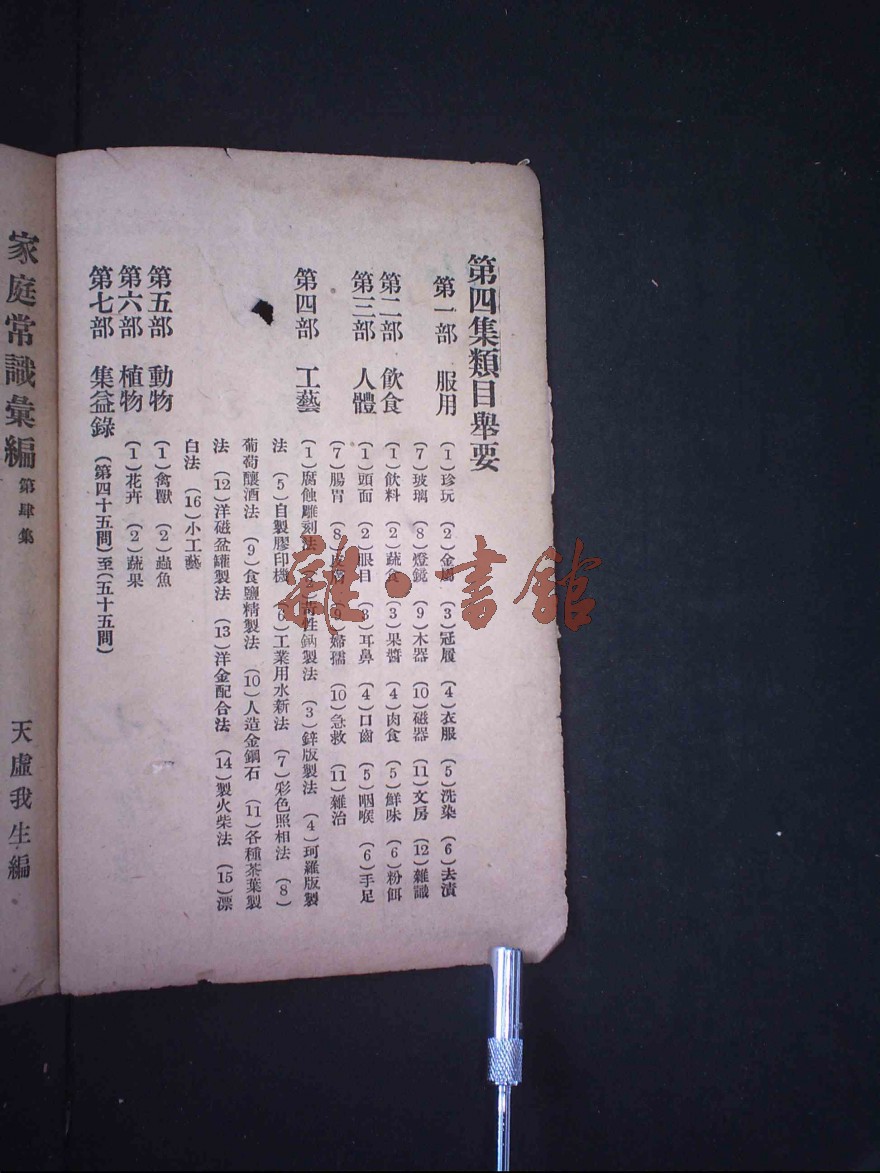 第四集類目舉要
第一部 服用 (1)珍玩 (2)金屬 (3)冠履 (4)衣服 (5)洗染 (6)去漬
(7)玻璃 (8)燈鏡 (9)木器 (10)磁器 (11)文房 (12)雜識
第二部 飲食 (1)飲料 (2)蔬食 (3)果醬 (4)肉食 (5)鮮味 (6)粉餌
第三部 人體 (1)頭面 (2)眼目 (3)耳鼻 (4)口齒 (5)咽喉 (6)手足
(7)腸胃 (8)皮膚 (9)婦孺 (10)急救 (11)雜治
第四部 工藝 (1)腐蝕雕刻法 (2)苛性鈉製法 (3)鋅版製法 (4)珂羅版製
法 (5)自製膠印機 (6)工業用水新法 (7)彩色照相法 (8)
葡萄釀酒法 (9)食鹽精製法 (10)人造金鋼石 (11)各種茶葉製
法 (12)洋磁盆罐製法 (13)洋金配合法 (14)製火柴法 (15)漂
白法 (16)小工藝
第五部 動物 (1)禽獸 (2)蟲魚
第六部 植物 (1)花卉 (2)蔬果
第七部 集益錄 (第四十五問)至(五十五問)
家庭常識彙編 第肆集 天虛我生編
雜·書館